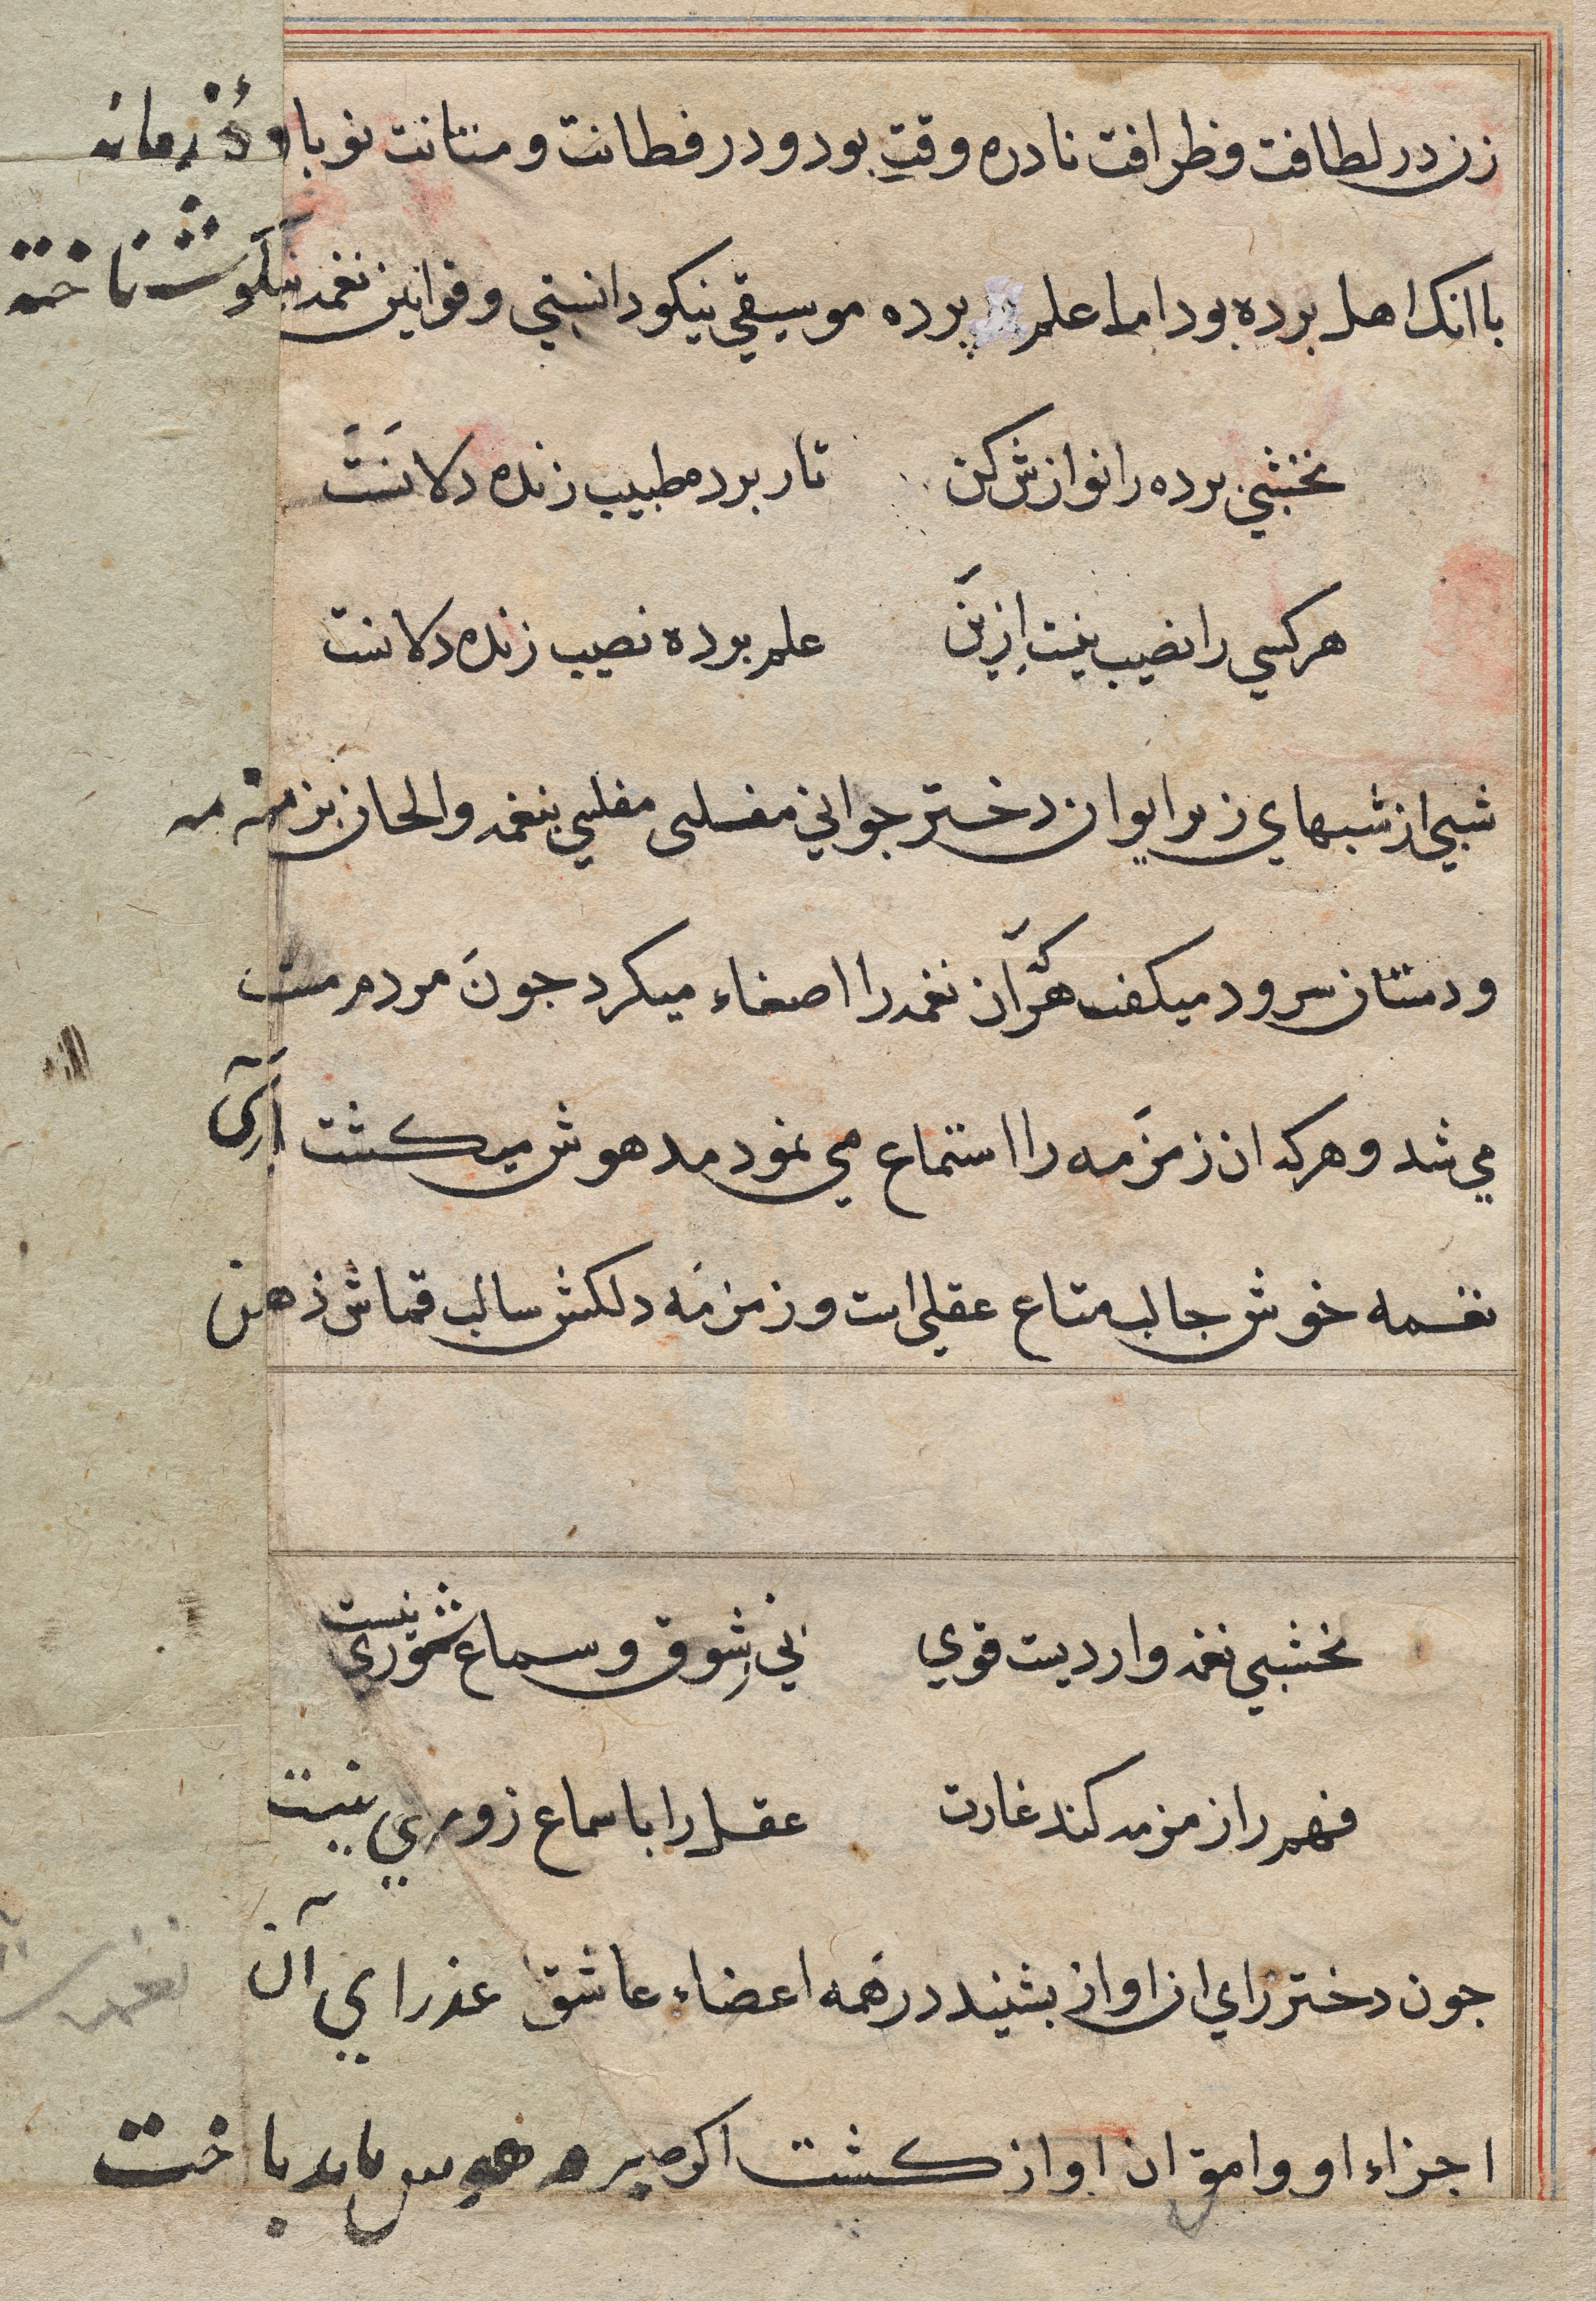 زن در لطافت و ظرافت نادره وقتِ بود و در فطانت و متانت نوباوهٔ زمانه
با انک اهل برده بود اما علم برده موسیقي نیکو دانستي و قوانین نغمه نیکو شناخته
نخشبي برده را نوازش کن تار برده طبیب زنده دلانست
هر کسي را نصیب نیست ازین علم برده نصیب زنده دلانست
شبي از شبهاي زیر ایوان دختر جواني مفلسی مفلسي بنغمه والحان بزمزمه
و دستان سرود میکفت هر کرآن نغمه را اصغاء میکرد جون مردم مست
مي شد و هرکه ان زمزمه را استماع مي نمود مدهوش میکشت آري
نغمه خوش جالب متاع عقلي است و زمزمه دلکش سالب قماش ذهن
نخشبي نغمه واردیست قوي ني شوق و سماع شوري نیست
فهم را زمزمه کند غارت عقل را با سماع زوري نیست
جون دختر راي ان اواز بشنید در همه اعضاء عاشق عذراي آن
اجزاء او وامق ان اواز کشت اکر صبر و هوس باید باخت